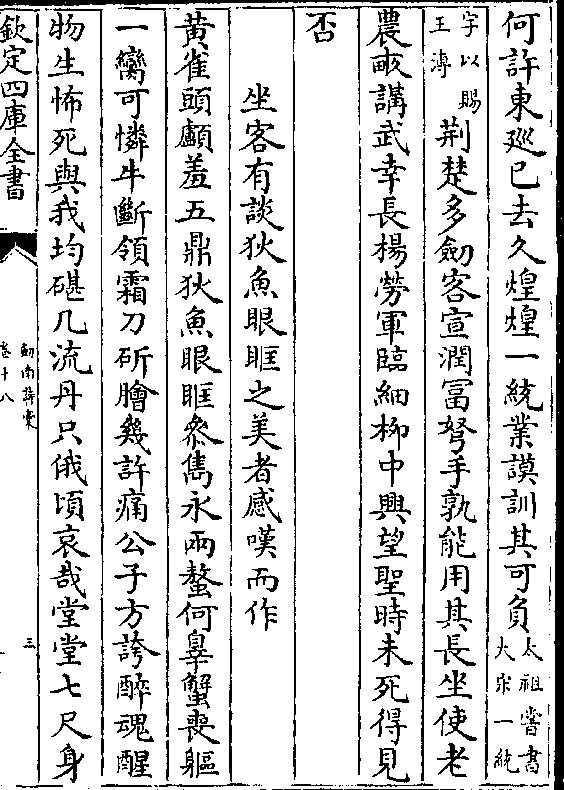 何許東廵已去久煌煌一統業謨訓其可負太祖嘗書大宋一統
字以賜王溥荆楚多劒客宣潤冨弩手孰能用其長坐使老
農畝講武幸長楊勞軍臨細栁中興望聖時未死得見
否
坐客有談狄魚眼眶之美者感嘆而作
黄雀頭顱羞五鼎狄魚眼眶叅雋永兩螯何辠蟹喪軀
一臠可憐牛斷領霜刀斫膾幾許痛公子方誇醉魂醒
物生怖死與我均碪几流丹只俄頃哀哉堂堂七尺身
欽定四庫全書
劒南詩稾
卷十八
三